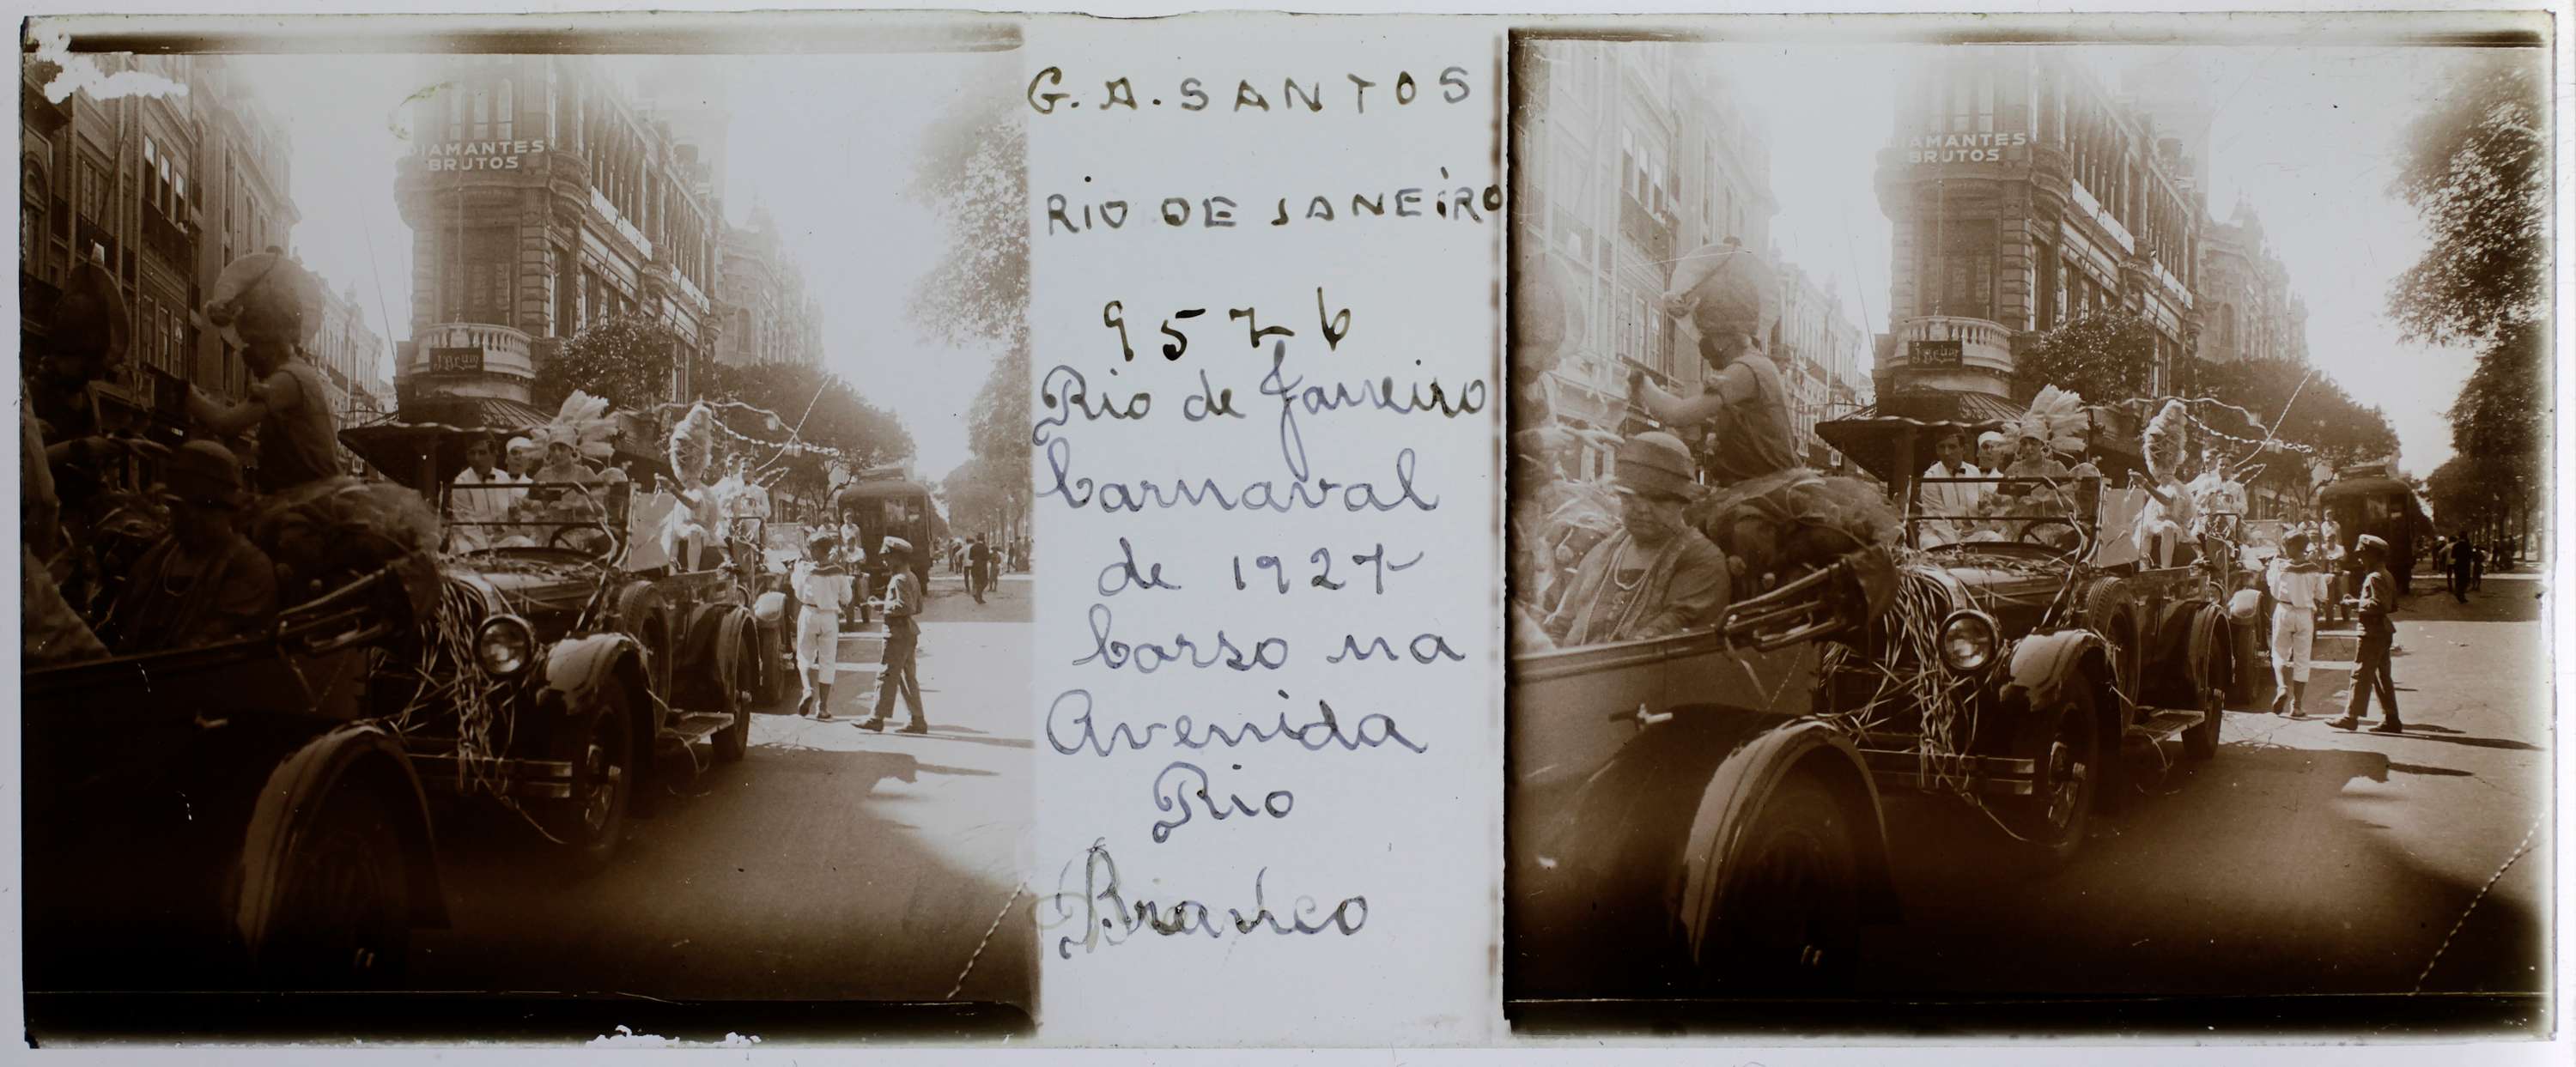 IAMANTES
BRUTOS
G. A. SANTOS
RIO DE JANEIRO
9576
Rio de Janeiro
Carnaval
de 1927
Corso na
Avenida
Rio
Branco
AMANTES
BRUTOS